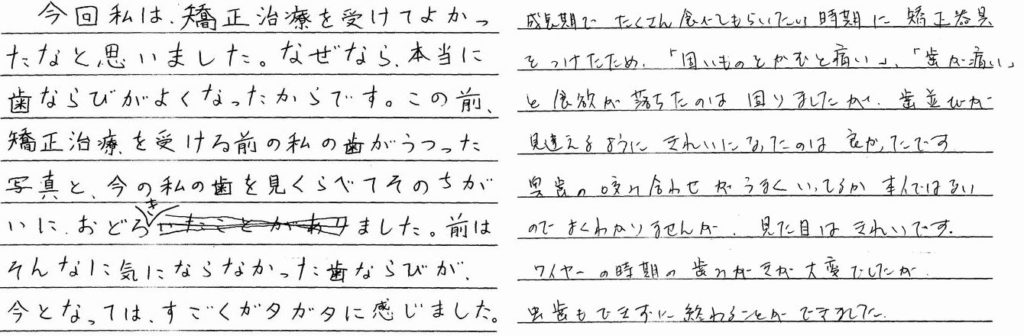 今回私は、矯正治療を受けてよかっ
たなと思いました。なぜなら、本当に
歯ならびがよくなったからです。この前、
矯正治療を受ける前の私の歯がうつった
写真と、今の私の歯を見くらべてそのちが
いに、おどろきました。前は
そんなに気にならなかった歯ならびが、
今となっては、すごくガタガタに感じました。
成長期で たくさん食べてもらいたい時期に 矯正器具
をつけたため、「固いものとかむと痛い」、「歯が痛い」
と食欲が落ちたのは困りましたが、歯並びが
見違えるように きれいになったのは 良かったです
奥歯の咬み合わせがうまくいってるか 本人ではない
ので よくわかりませんが、見た目は きれいです。
ワイヤーの時期の歯みがきが 大変でしたが
虫歯もできずに 終わることができました。